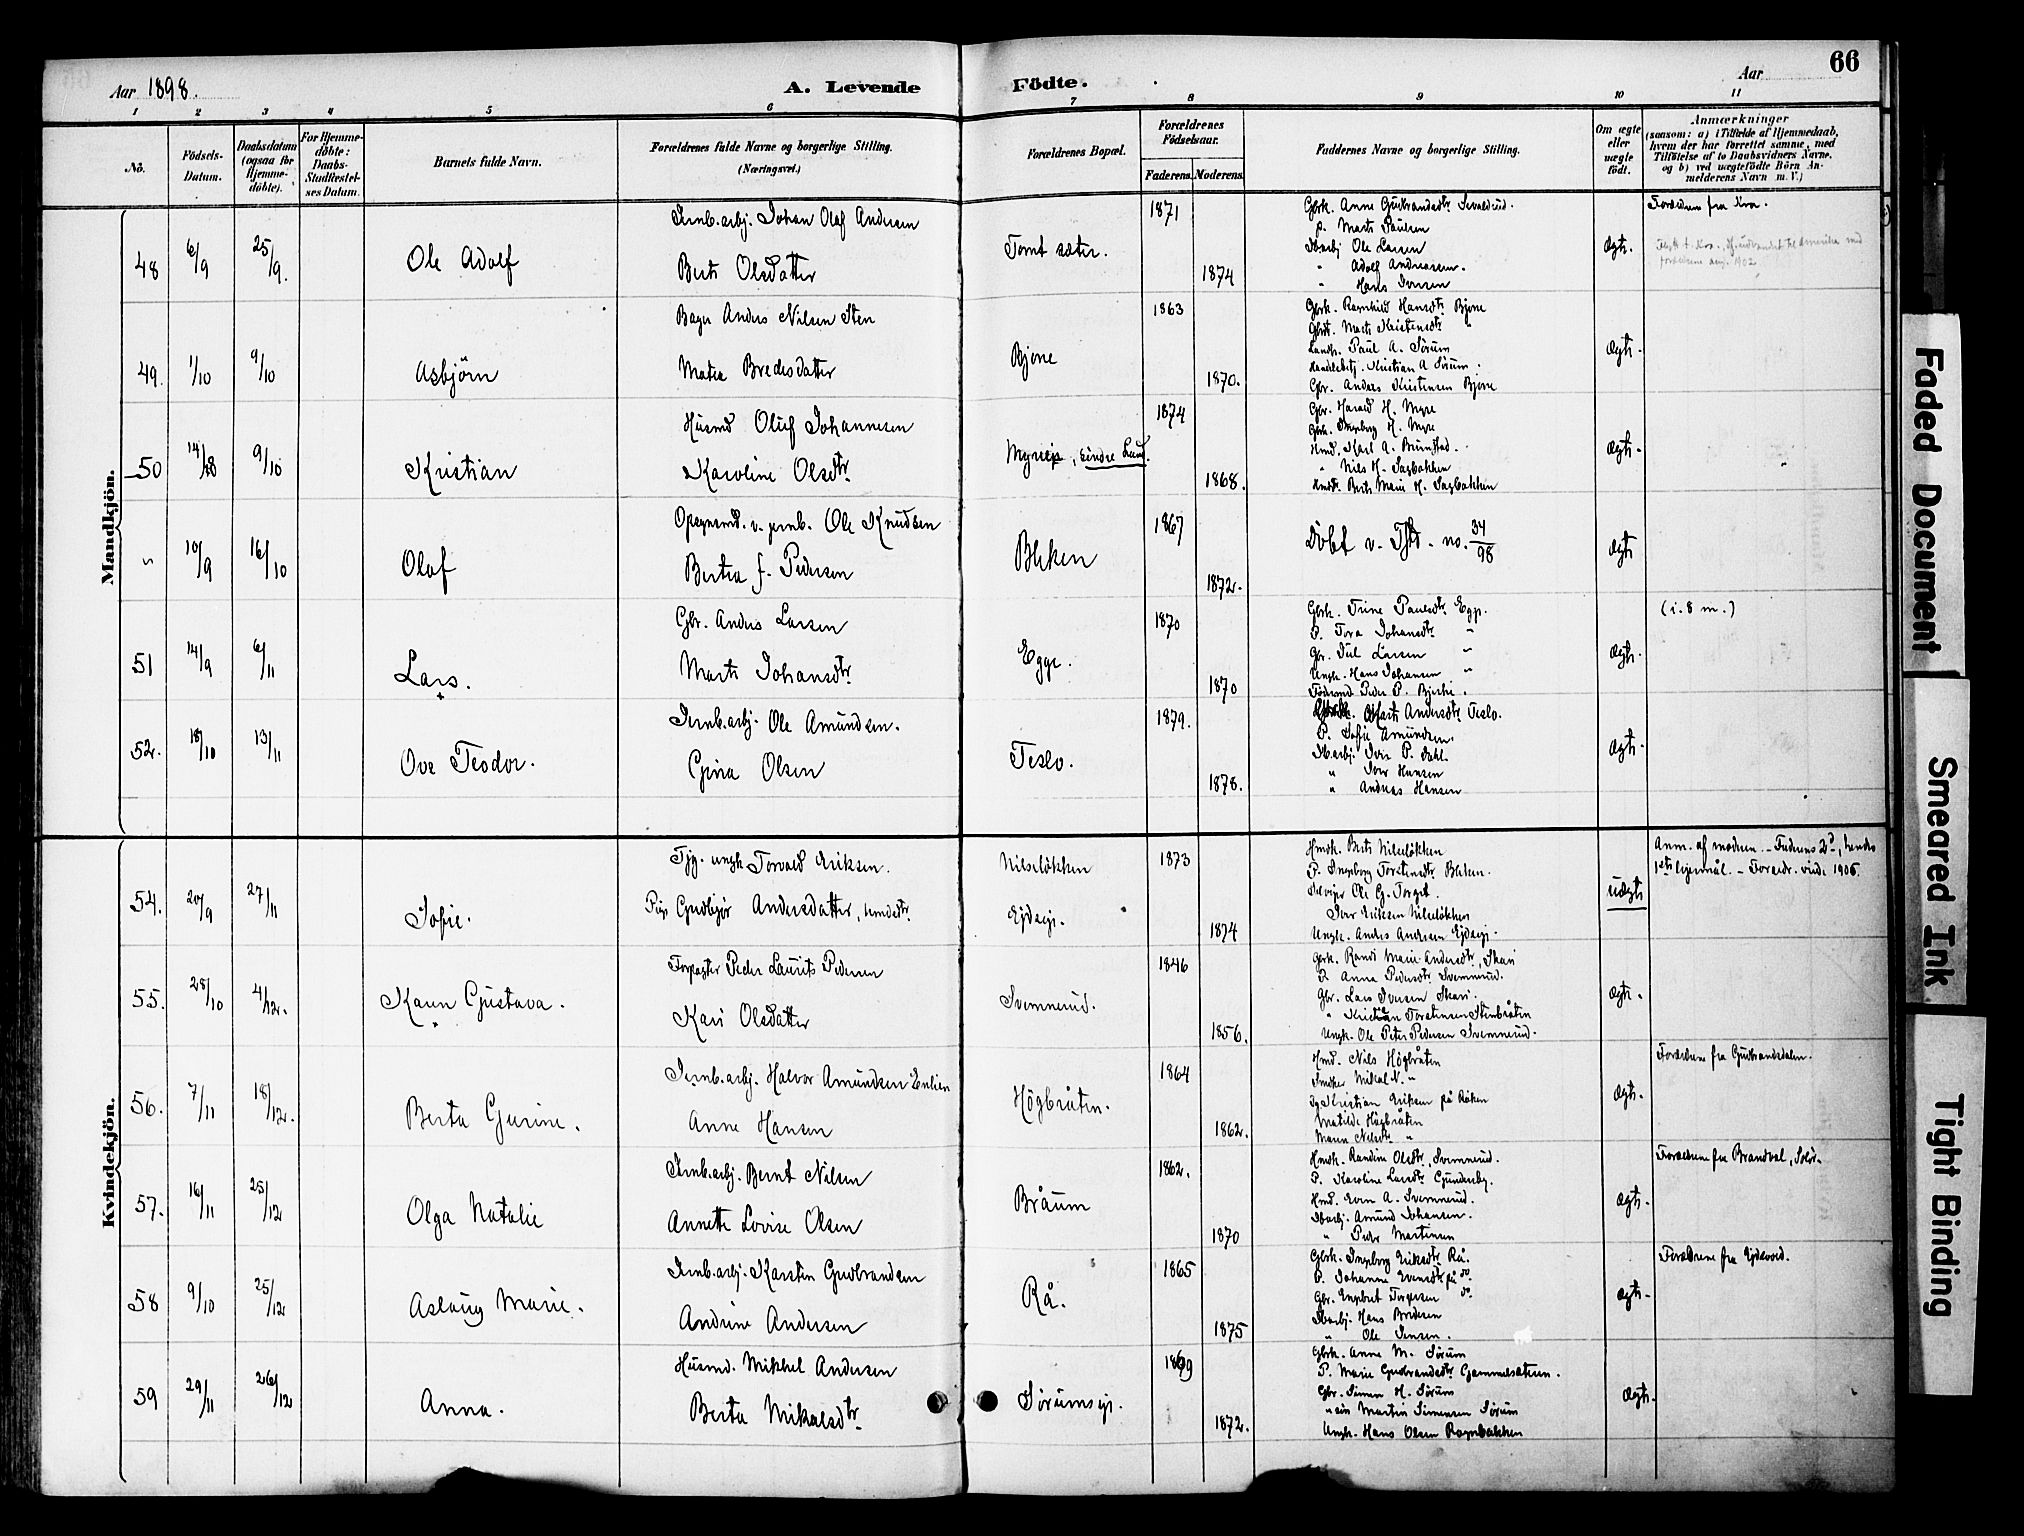 Aar 1898.
A. Levende Födte.
Aar
66
1 2 3 4 5 6 7 8 9 10 11
No.
Födsels-Datum.
Daabsdatum (ogsaa for Hjemme-döbte).
For Hjemme-döbte: Daabs-Stadfæstel-ses Datum.
Barnets fulde Navn.
Forældrenes fulde Navne og borgerlige Stilling.
(Næringsvei.)
Forældrenes Bopæl.
Forældrenes Födselsaar.
Faderens. Moderens.
Faddernes Navne og borgerlige Stilling.
Om ægte eller uægte født.
Anmærkninger
(saasom: a) i Tilfælde af Hjemmedaab, hvem der har forrettet samme, med Tilföielse af to Daabsvidners Navne, og b) ved uægtefödte Börn An-melderens Navn m. V.)
Mandkjön.
48 6/9 25/9. Ole Adolf
Jernb.arbj. Johan Olaf Andersen
Berte Olsdatter
Tomt sæter.
1871
1874
Gbrk. Anne Gudbrandsdtr.
P. Marte Paulsen
Jbarbj Ole Larsen
" Adolf Andreassen.
" Hans Iversen
Ægte.
Forældrene fra Kra.
49. 1/10 9/10 Asbjörn
Bager Anders Nilsen Sten
Matea Bredesdatter
Bjone
1863
1870.
Gbrk. Ragnhild Hansdtr Bjone
Gbrdt. Marte Kristensdtr "
Landh. Paul A. Sörum
Handelsbetj. Kristian A Sörum.
Gbr. Anders Kristensen Bjone
Ægte.
50 9/10 Kristian
Husmd Oluf Johannesen
Karoline Olsdtr.
Myreje, Søndre Lund.
1874
1868.
Gbr. Harald H. Myre
Gbrk. Ingeborg H. Myre
Hmd. Karl A. Brunstad.
" Nils H. Sagbakken
Hmdk. Berte Marie H. Sagbakken
Ægte.
" 10/9 16/10 Olaf
Opsynsmd. v. jernb. Ole Knudsen
Bertea f. Pedersen
Bleken
1867
1872.
Döbt v. Tjst. no. 34/98
Ægte
51 14/9 6/11 Lars.
Gbr. Anders Larsen
Marte Johansdtr.
Egge.
1870
1870
Gbrk. Trine Paulsdtr. Egge.
P. Tora Johansdtr "
Gbr. Juel Larsen "
Ungk. Hans Johansen "
Födrmd Peder P. Bjerke.
Ægte.
(i. 8 m.)
52. 18/10 13/11 Ove Teodor.
Jernb.arbj. Ole Amundsen.
Gina Olsen
Teslo.
1879.
1878.
Gbrk. Marte Andersdtr. Teslo.
P. Sofie Amundsen.
Jb.arbj. Iver P. Dahl.
" Iver Hansen
" Andreas Hansen
Ægte.
Kvindekjön.
54. 20/9 27/11 Sofie.
Tjg. ungk Torvald Eriksen.
Pige Gudbjör Andersdatter
Nilselökken
Ejdseje.
1873
1874
Hmdk. Berte Nilselökken
P. Ingeborg Torstensdtr Bleken.
Ole G. Torgit.
Iver Eriksen Nilselökken
Ungk. Anders Andersen Ejdseje.
uægte
Anm. af modren. - Faderens 2d, hendes
1ste lejermål. - Forældr. viede 1906.
55. 28/10 4/12. Karen Gustava.
Forpagter Peder Laurits Pedersen
Kari Olsdatter
Svennerud.
1846
1856.
Gbrk. Randi Marie Andersdtr, Skari
P. Anna Pedersdtr Svennerud.
Gbr. Lars Iversen Skari.
" Kristian Torstensen Stenbråten
Ungk. Ole Peter Pedersen Svennerud.
Ægte.
56. 7/11 18/12. Berta Gurine.
Jernb.arbj. Halvor Amundsen Enlien
Anne Hansen
Högbråten.
1864
1862.
Hmd. Nils Högbråten
Snedker Mikal N. "
Kristian Eriksen på Röken
Matilde Högbråten
Maren Nilsdtr "
Ægte.
Forældrene fra Gudbrandsdalen.
57. 16/11 25/12 Olga Natalie
Jernb.arbj. Bernt Nilsen
Annette Lovise Olsen
Bråum
1862.
1870
Hmdk. Randine Olsdtr, Svennerud.
P. Karoline Larsdtr Gundersby.
Hmd. Even A. Svennerud.
Jbarbj. Amund Johansen.
" Peder Martinsen
Ægte.
Forældrene fra Brandval, Solör.
58 9/10 25/12 Aslaug Marie.
Jernb.arbj. Karsten Gudbrandsen
Andrine Andersen
Rå.
1865
1875
Gbrk. Ingeborg Eriksdtr Rå.
P. Johanne Evensdtr på do.
Gbr. Engebret Torgersen do.
Jbarbj. Hans Bredesen
" Ole Jensen.
Ægte.
Forældrene fra Ejdsvold.
59 29/11 26/12 Anna.
Husmd. Mikkel Andersen
Berta Mikalsdtr.
Sörumseje.
1869
1872.
Gbrk. Anne M. Sörum
P. Marie Gudbrandsdtr Gammelsæteren.
Gbr. Simen H. Sörum
" sön Martin Simensen Sörum
Ungk. Hans Olsen Rognbakken
Ægte.
Faded Document
Smeared Ink
Tight Binding